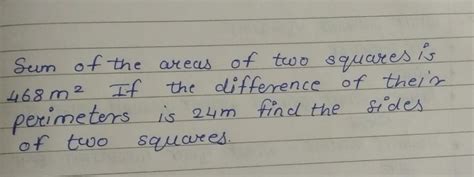 Sum of the areas of two squares is
468 m² If the difference of their
perimeters is 24m find the sides
of two squares.